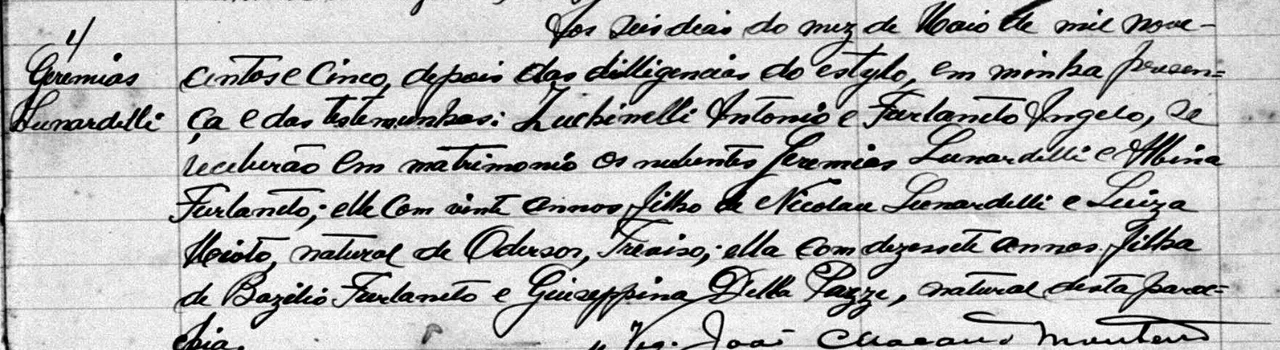 4
Geremias
Lunardelli
Aos seis dias do mez de Maio de mil nove-
centos e Cinco, depois das dilligencias do estylo, em minha presen-
ça e das testemunhas: Zuchinelli Antonio e Furlaneto Angelo, se
receberão em matrimonio os nubentes Geremias Lunardelli e Albina
Furlaneto; elle com vinte annos filho de Nicolau Lunardelli e Luiza
Mioto, natural de Oderso, Treviso; ella com dezessete annos filha
de Bazilio Furlaneto e Giuseppina Della Pazze, natural desta paro-
chia.
João Monteiro